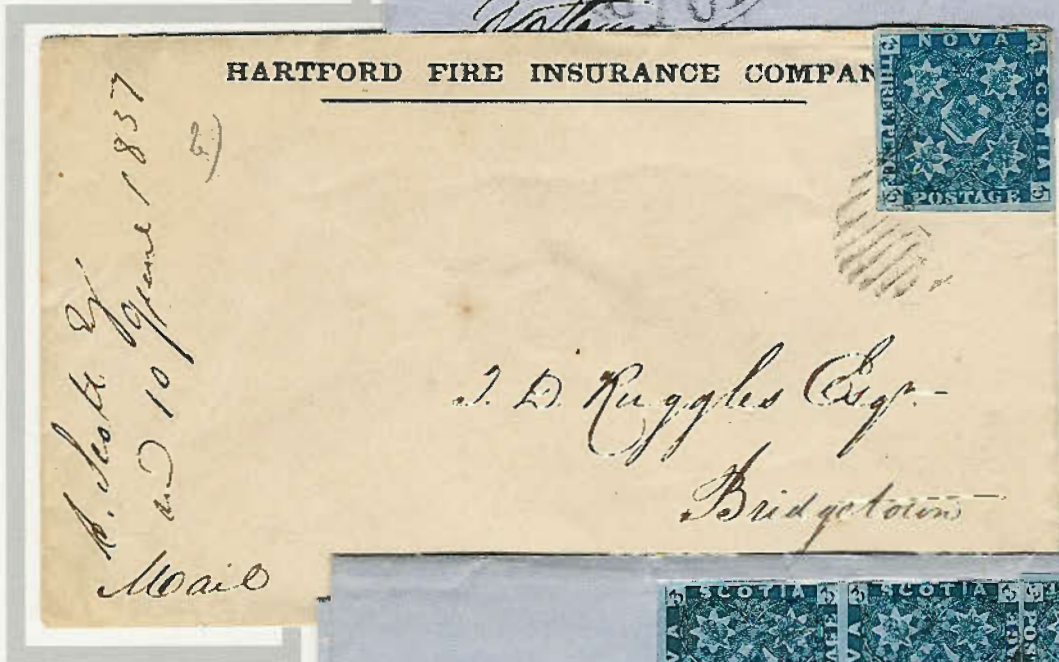 HARTFORD FIRE INSURANCE COMPAN
NOVA
SCOTIA
THREE PENCE
POSTAGE
3
3
3
3
Esqr
and 10 June 1857
J. D. Ruggles Esqr.
Bridgetown
Mail
SCOTIA
SCOTIA